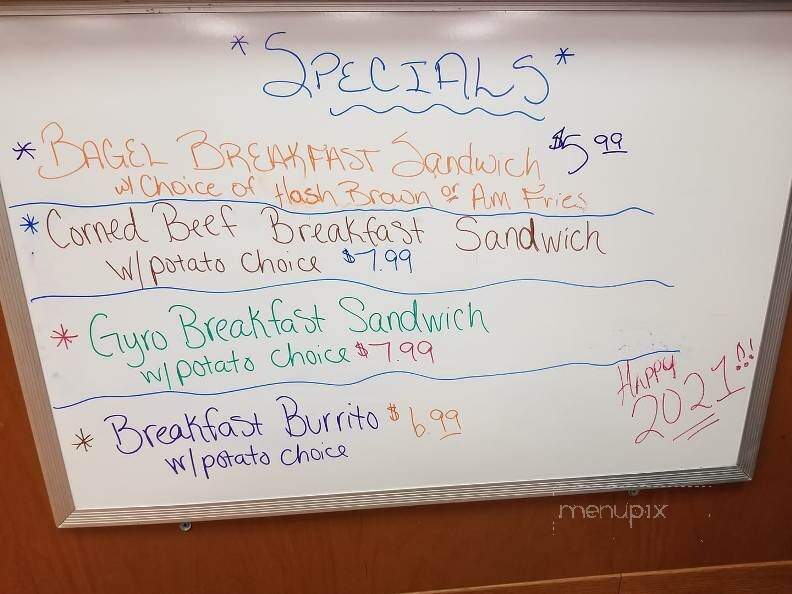 * SPECIALS *
* BAGEL BREAKFAST Sandwich $5.99
w/ Choice of Hash Brown or Am Fries
* Corned Beef Breakfast Sandwich
w/potato choice $7.99
* Gyro Breakfast Sandwich
w/potato choice $7.99
* Breakfast Burrito $6.99
w/potato choice
HAPPY
2021!!!
menupix